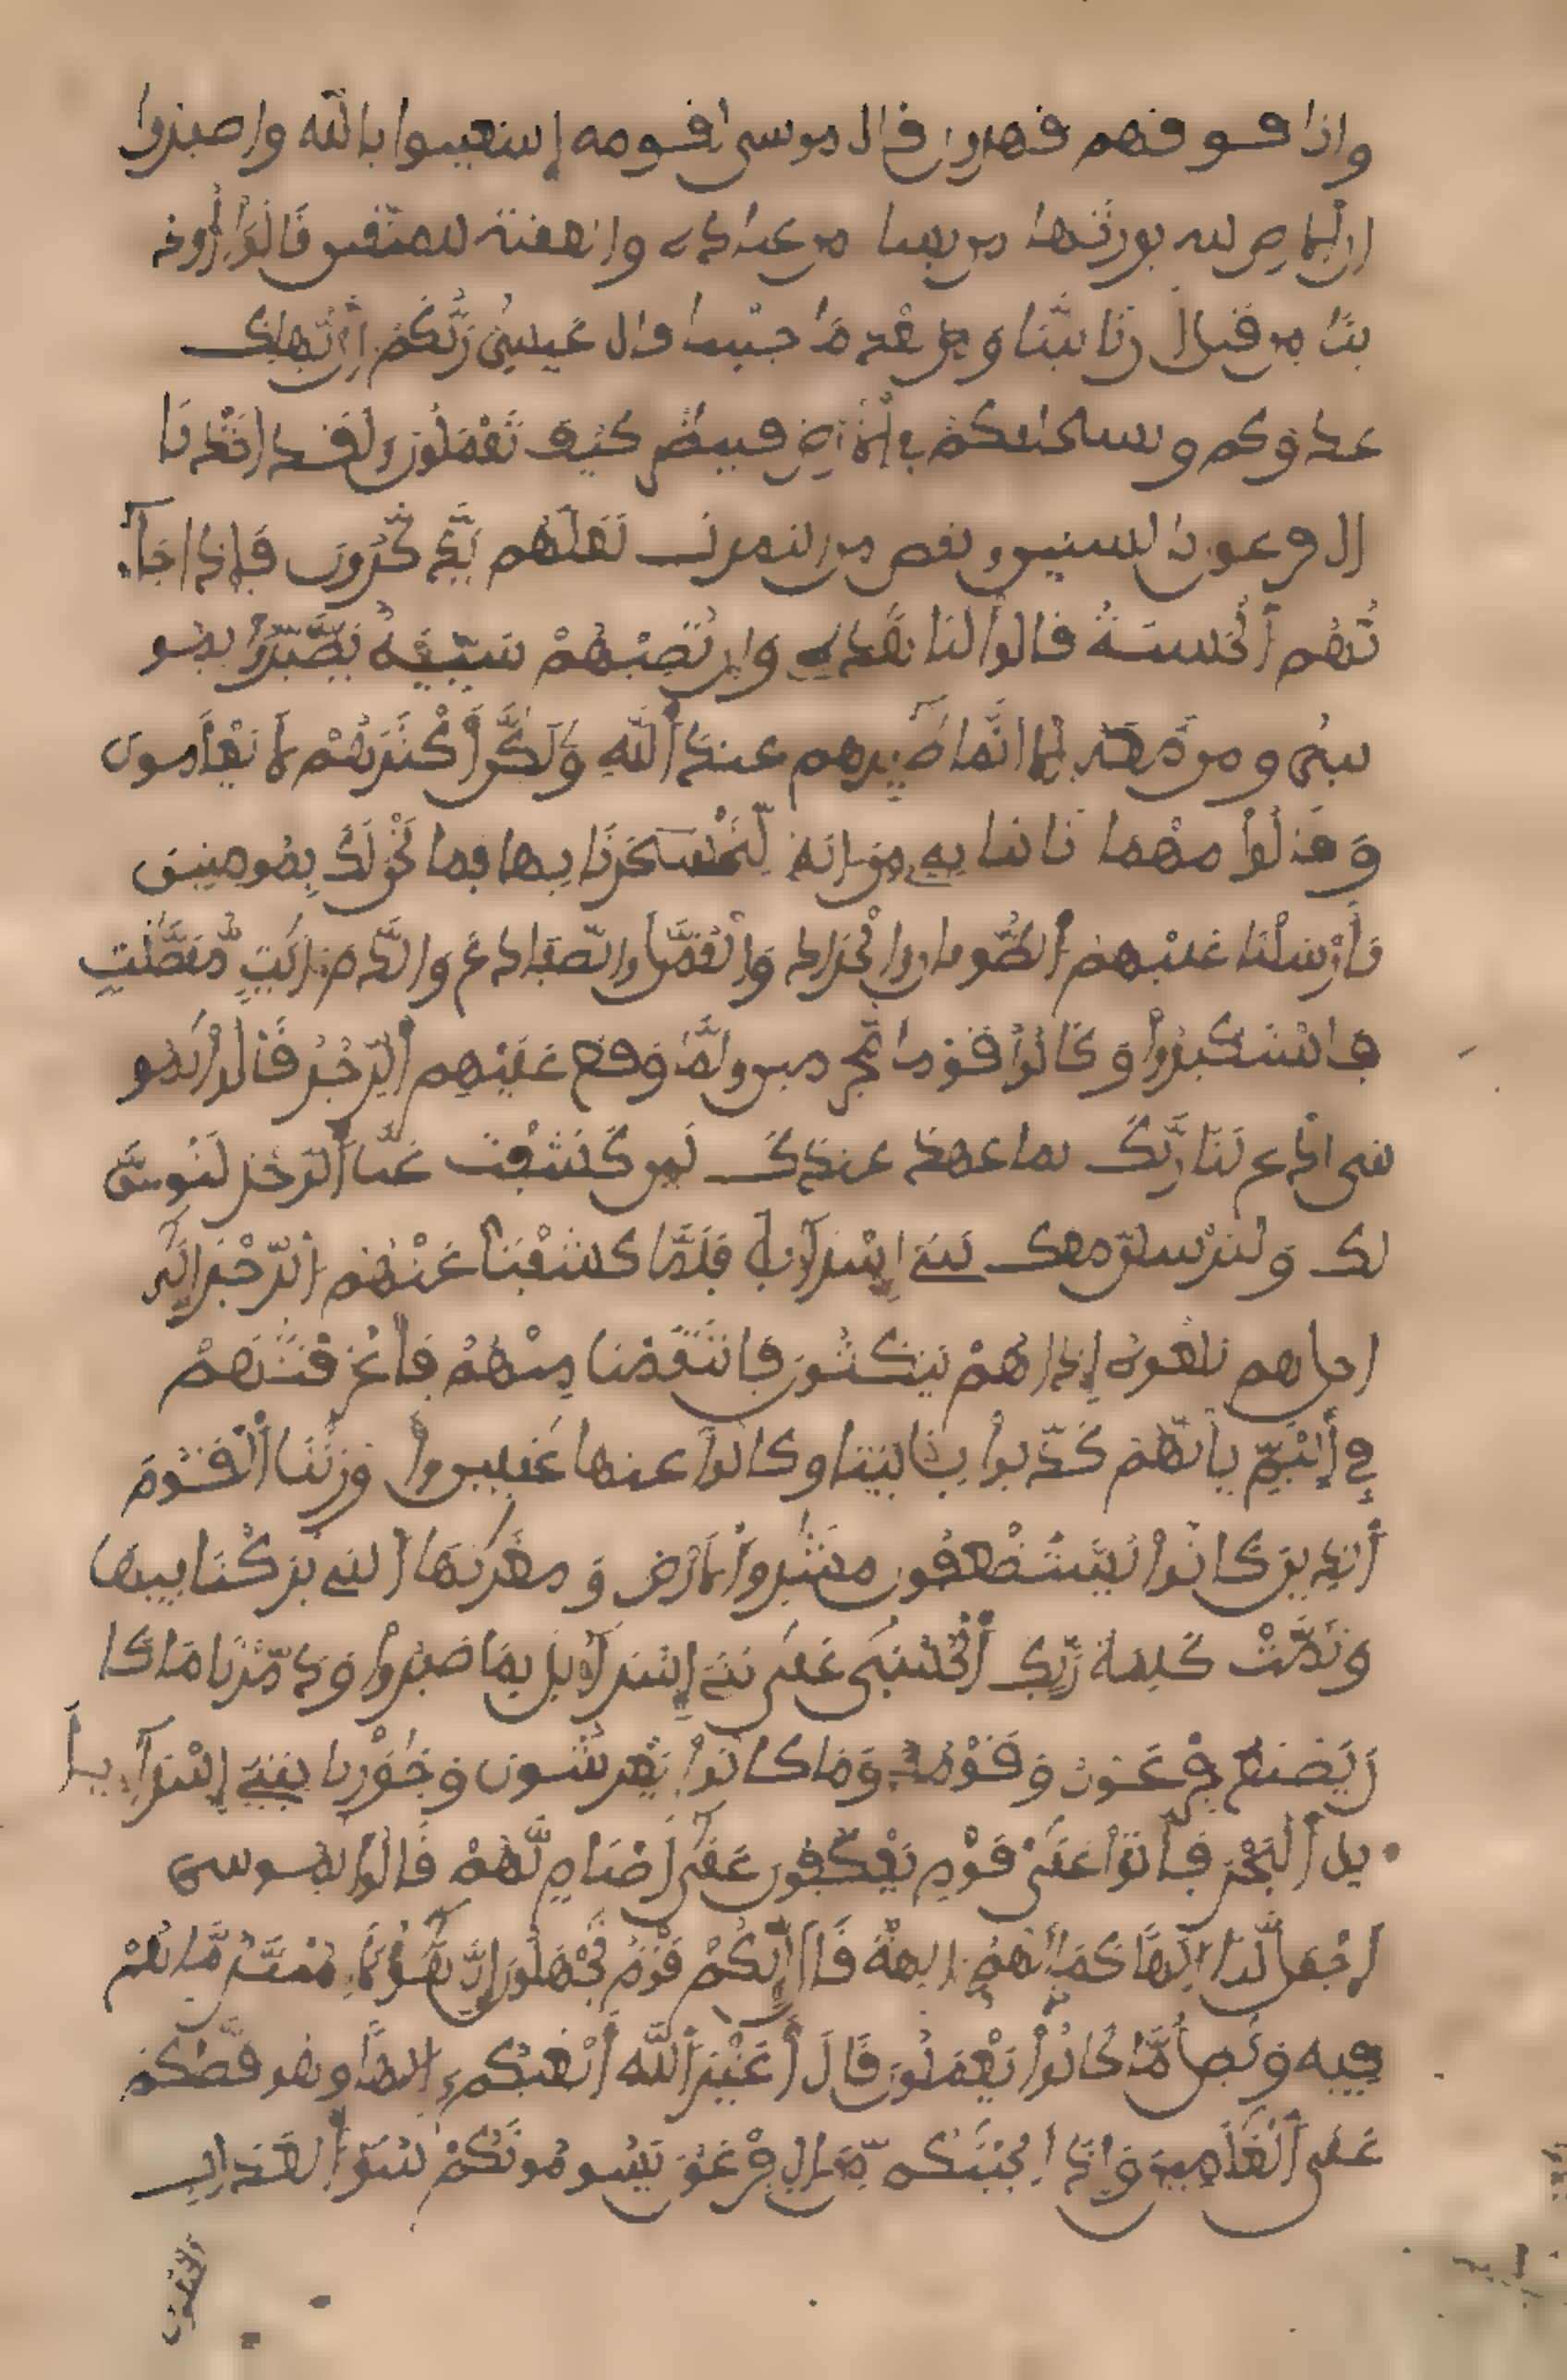 وانا فوقهم قهرون قال موسى لقومه إستعينوا بالله واصبروا
ان الارض لله يورثها من يشا من عباده والعقبة للمتقين قالوا أوذ
ينا من قبل ان تاتينا ومن بعد ما جيتنا قال عيسى ربكم أن يهلك
عدوكم ويستخلفكم في الارض فينظر كيف تعملون ولقد اخذنا
ال فرعون بالسنين ونقص من الثمرت لعلهم يذكرون فإذا جآ
تهم الحسنة قالوا لنا هذه وإن تصبهم سيئة يطيروا بمو
سى ومن معه ألا انما طيرهم عند الله ولكن أكثرهم لا يعلمون
وقالوا مهما تاتنا به من اية لتسحرنا بها فما نحن لك بمومنين
فأرسلنا عليهم الطوفان والجراد والقمل والضفادع والدم ايت مفصلت
فاستكبروا وكانوا قوما مجرمين ولما وقع عليهم الرجز قالوا يمو
سى ادع لنا ربك بما عهد عندك لين كشفت عنا الرجز لنومنن
لك ولنرسلن معك بني إسرآيل فلما كشفنا عنهم الرجز إلى
اجل هم بلغوه إذا هم ينكثون فانتقمنا منهم فأغرقنهم
في اليم بأنهم كذبوا بئايتنا وكانوا عنها غفلين وأورثنا القوم
الذين كانوا يستضعفون مشرق الارض ومغربها التي بركنا فيها
وتمت كلمة ربك الحسنى على بني إسرآيل بما صبروا ودمرنا ما كا
ن يصنع فرعون وقومه وما كانوا يعرشون وجوزنا ببني إسرآ
يل البحر فأتوا على قوم يعكفون على أصنام لهم قالوا يموسى
اجعل لنا إلها كما لهم الهة قال إنكم قوم تجهلون إن هؤلاء متبر ما هم
فيه وبطل ما كانوا يعملون قال أغير الله أبغيكم إلها وهو فضلكم
على العلمين وإذ انجينكم من ال فرعون يسومونكم سوء العذاب